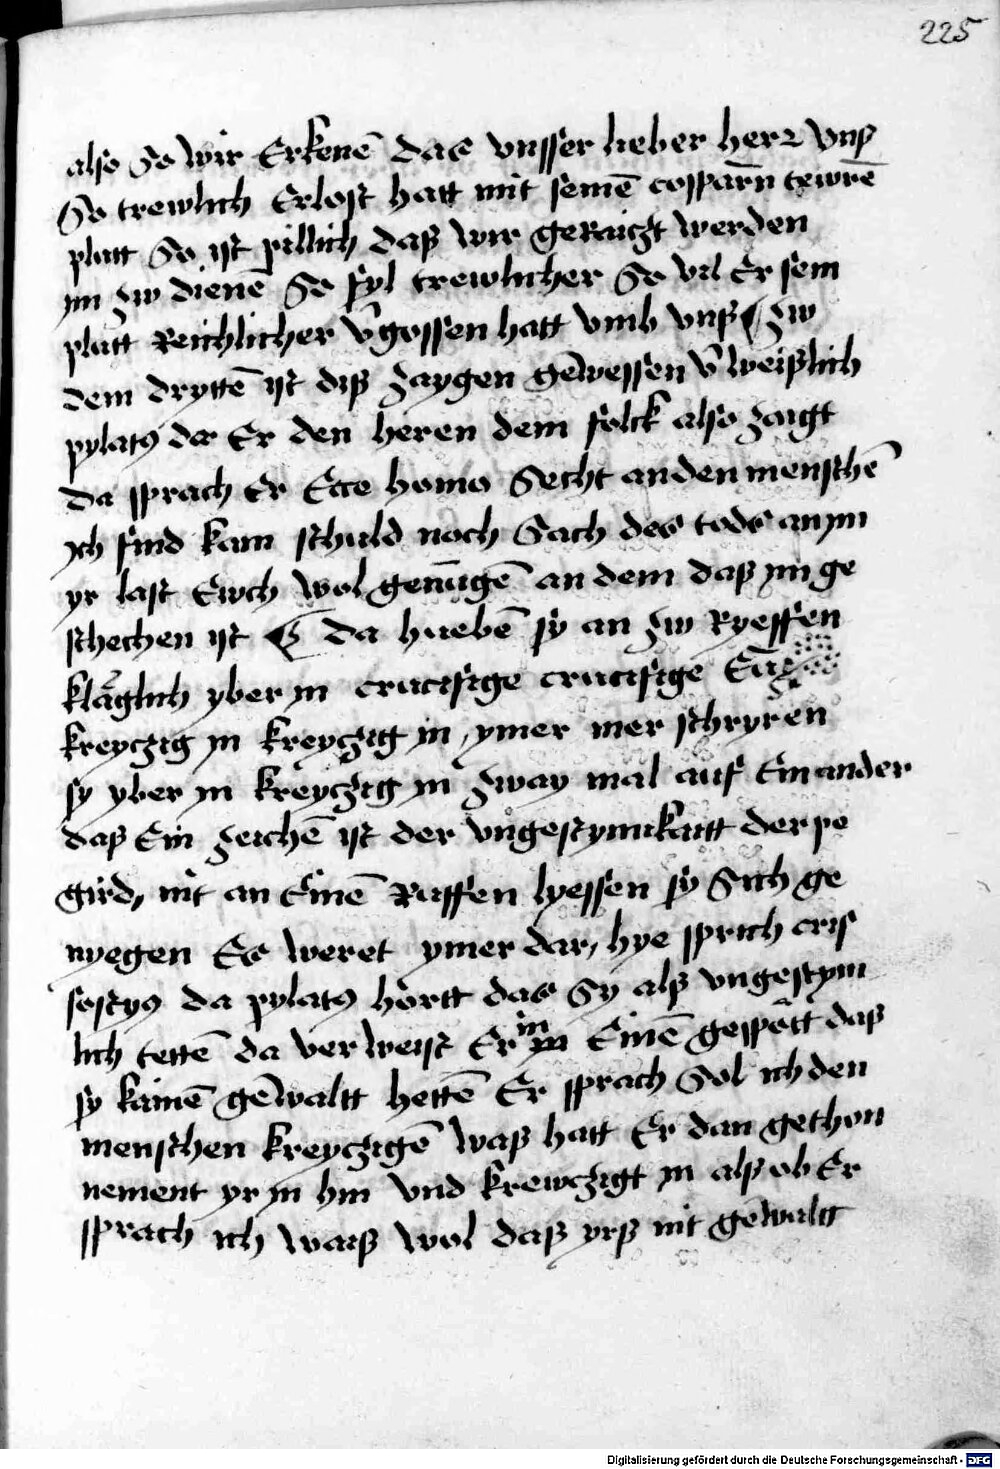 225
also So wir Erkenē das vnsser lieber herr vnß
So trewlich Erlost hatt mit seinē cosparn̄ tewrē
plutt So ist pillich daß wir geRaiczt werden
im zw dienē So fyl trewlicher So vil Er sein
plutt Reichlicher v̄gossen hatt vmb vnß ¶ zw
dem dryttē ist diß zaygen gewessen v̄weißlich
pylatꝰ da Er den heren dem folck also zaigt
da sprach Er Ecce homo Secht an den menschē
Ich find kain schuld noch Sach des tods an im
yr last Ewch wol genūgē an dem daß im ge
schechen ist ¶ da huebē sy an zw Ryeffen
kläglich yber in crucifige crucifige
kreyczig in kreyczig in, ymer mer schryren
sy yber in kreyczig in zway mal auf Ein ander
daß Ein zeichē ist der vngestymikaitt der pe
gird, nit an Einē Ruffen lyessen sy Sich ge
nyegen Es weret ymer dar, hye sprich cris
sostyꝰ da pylatꝰ hörtt das Sy alß vngestym
lich tettē da ver weist Er in in Einē gespött daß
sy kainē gewaltt hettē Er sprach Sol ich den
menschen kreyczigē waß hatt Er dan gethon
nement yr in hin vnd krewczigt in alß ob Er
sprach ich waiß wol daß yrß nit gewaltt
Digitalisierung gefördert durch die Deutsche Forschungsgemeinschaft - DFG